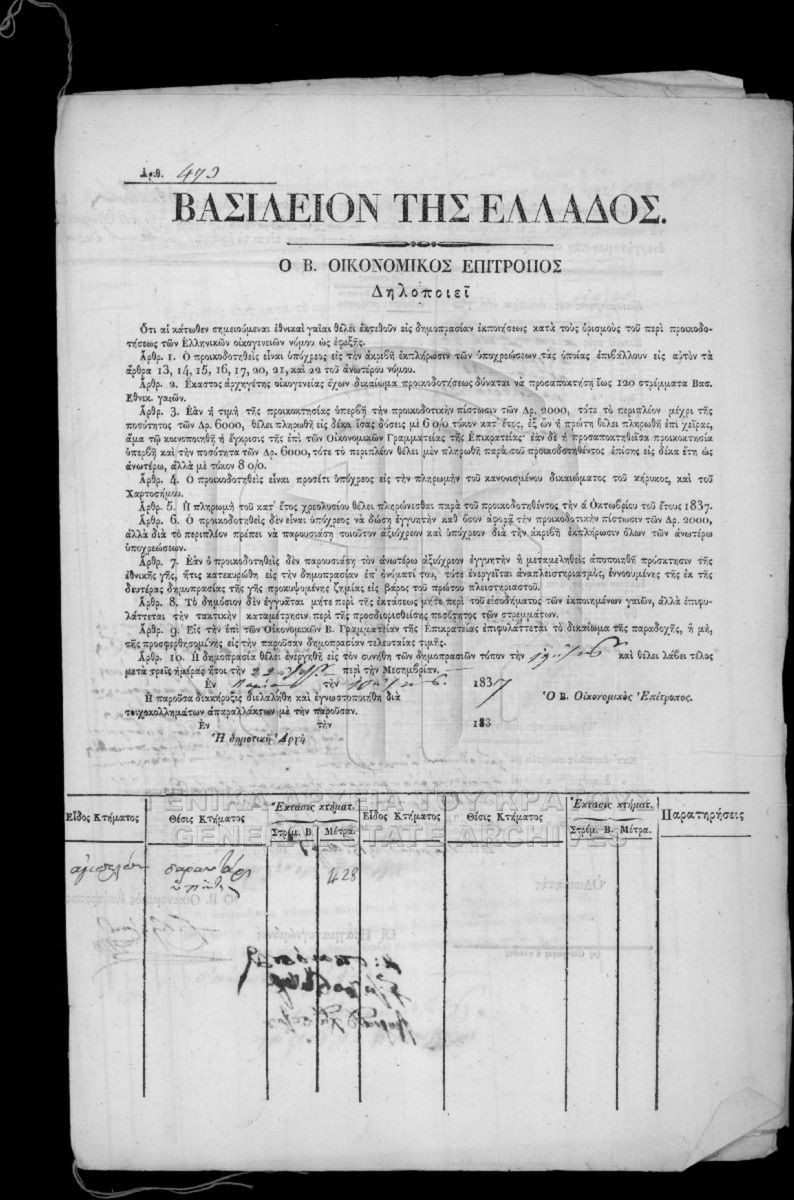 Αριθ. 473
ΒΑΣΙΛΕΙΟΝ ΤΗΣ ΕΛΛΑΔΟΣ.
Ο Β. ΟΙΚΟΝΟΜΙΚΟΣ ΕΠΙΤΡΟΠΟΣ
Δηλοποιεῖ
Οτι αἱ κάτωθεν σημειούμεναι ἐθνικαὶ γαῖαι θέλει ἐκτεθοῦν εἰς δημοπρασίαν ἐκποιήσεως κατὰ τοὺς ὁρισμοὺς τοῦ περὶ προικοδο-
τήσεως τῶν Ἑλληνικῶν οἰκογενειῶν νόμου ὡς ἐφεξῆς.
Αρθρ. 1. Ο προικοδοτηθεὶς εἶναι ὑπόχρεος εἰς τὴν ἀκριβῆ ἐκπλήρωσιν τῶν ὑποχρεώσεων τὰς ὁποίας ἐπιβάλλουν εἰς αὐτὸν τὰ
ἄρθρα 13, 14, 15, 16, 17, 20, 21, καὶ 22 τοῦ ἀνωτέρου νόμου.
Αρθρ. 2. Εκαστος ἀρχηγέτης οἰκογενείας ἔχων δικαίωμα προικοδοτήσεως δύναται νὰ προσαποκτήσῃ ἕως 120 στρέμματα Βασ.
Εθνικ. γαιῶν.
Αρθρ. 3. Εὰν ἡ τιμὴ τῆς προικοκτησίας ὑπερβῇ τὴν προικοδοτικὴν πίστωσιν τῶν Δρ. 2000, τότε τὸ περιπλέον μέχρι τῆς
ποσότητος τῶν Δρ. 6000, θέλει πληρωθῆ εἰς δέκα ἴσας δόσεις μὲ 6 0/0 τόκον κατ᾿ ἔτος, ἐξ ὧν ἡ πρώτη θέλει πληρωθῆ ἐπὶ χεῖρας,
ἅμα τῷ κοινοποιηθῇ ἡ ἔγκρισις τῆς ἐπὶ τῶν Οἰκονομικῶν Γραμματείας τῆς Επικρατείας· ἐὰν δὲ ἡ προσαποκτηθεῖσα προικοκτησία
ὑπερβῇ καὶ τὴν ποσότητα τῶν Δρ. 6000, τότε τὸ περιπλέον θέλει μὲν πληρωθῆ παρὰ τοῦ προικοδοτηθέντος ἐπίσης εἰς δέκα ἔτη ὡς
ἀνωτέρω, ἀλλὰ μὲ τόκον 8 0/0.
Αρθρ. 4. Ο προικοδοτηθεὶς εἶναι προσέτι ὑπόχρεος εἰς τὴν πληρωμὴν τοῦ κανονισμένου δικαιώματος τοῦ κήρυκος, καὶ τοῦ
Χαρτοσήμου.
Αρθρ. 5. Η πληρωμὴ τοῦ κατ᾿ ἔτος χρεολυσίου θέλει πληρώνεσθαι παρὰ τοῦ προικοδοτηθέντος τὴν ά Οκτωβρίου τοῦ ἔτους 1837.
Αρθρ. 6. Ο προικοδοτηθεὶς δὲν εἶναι ὑπόχρεος νὰ δώσῃ ἐγγυητὴν καθ᾿ ὅσον ἀφορᾷ τὴν προικοδοτικὴν πίστωσιν τῶν Δρ. 2000,
ἀλλὰ διὰ τὸ περιπλέον πρέπει νὰ παρουσιάσῃ τοιοῦτον ἀξιόχρεον καὶ ὑπόχρεον διὰ τὴν ἀκριβῆ ἐκπλήρωσιν ὅλων τῶν ἀνωτέρω
ὑποχρεώσεων.
Αρθρ. 7. Εὰν ὁ προικοδοτηθεὶς δὲν παρουσιάσῃ τὸν ἀνωτέρω ἀξιόχρεον ἐγγυητὴν ἢ μεταμεληθεὶς ἀποποιηθῇ πρόσκτησιν τῆς
ἐθνικῆς γῆς, ἥτις κατεκυρώθη εἰς τὴν δημοπρασίαν ἐπ᾿ ὀνόματί του, τότε ἐνεργεῖται ἀναπλειστηριασμὸς, ἐννοουμένης τῆς ἐκ τῆς
δευτέρας δημοπρασίας τῆς γῆς προκυψομένης ζημίας εἰς βάρος τοῦ πρώτου πλειστηριαστοῦ.
Αρθρ. 8. Τὸ δημόσιον δὲν ἐγγυᾶται μήτε περὶ τῆς ἐκτάσεως μήτε περὶ τοῦ εἰσοδήματος τῶν ἐκποιημένων γαιῶν, ἀλλὰ ἐπιφυ-
λάττεται τὴν τακτικὴν καταμέτρησιν περὶ τῆς προσδιορισθείσης ποσότητος τῶν στρεμμάτων.
Αρθρ. 9. Εἰς τὴν ἐπὶ τῶν Οἰκονομικῶν Β. Γραμματείαν τῆς Επικρατείας ἐπιφυλάττεται τὸ δικαίωμα τῆς παραδοχῆς, ἢ μὴ,
τῆς προσφερθησομένης εἰς τὴν παροῦσαν δημοπρασίαν τελευταίας τιμῆς.
Αρθρ. 10. Η δημοπρασία θέλει ἐνεργηθῆ εἰς τὸν συνήθη τῶν δημοπρασιῶν τόπον τὴν καὶ θέλει λάβει τέλος
μετὰ τρεῖς ἡμέρας ἤτοι τὴν 22 περὶ τὴν Μεσημβρίαν.
Εν τὴν 1837
Ἡ παροῦσα διακήρυξις διελαλήθη καὶ ἐγνωστοποιήθη διὰ Ὁ Β. Οἰκονομικὸς Ἐπίτροπος.
τοιχοκολλημάτων ἀπαραλλάκτων μὲ τὴν παροῦσαν.
Εν τὴν 183
Ἡ δημοτικὴ Ἀρχὴ
ΓΕΝΙΚΑ ΑΡΧΕΙΑ ΤΟΥ ΚΡΑΤΟΥΣ
GENERAL STATE ARCHIVES
Εἶδος Κτήματος Θέσις Κτήματος Ἔκτασις κτήματ. Εἶδος Κτήματος Θέσις Κτήματος Ἔκτασις κτήματ. Παρατηρήσεις
Στρέμ. Β. Μέτρα. Στρέμ. Β. Μέτρα.
428